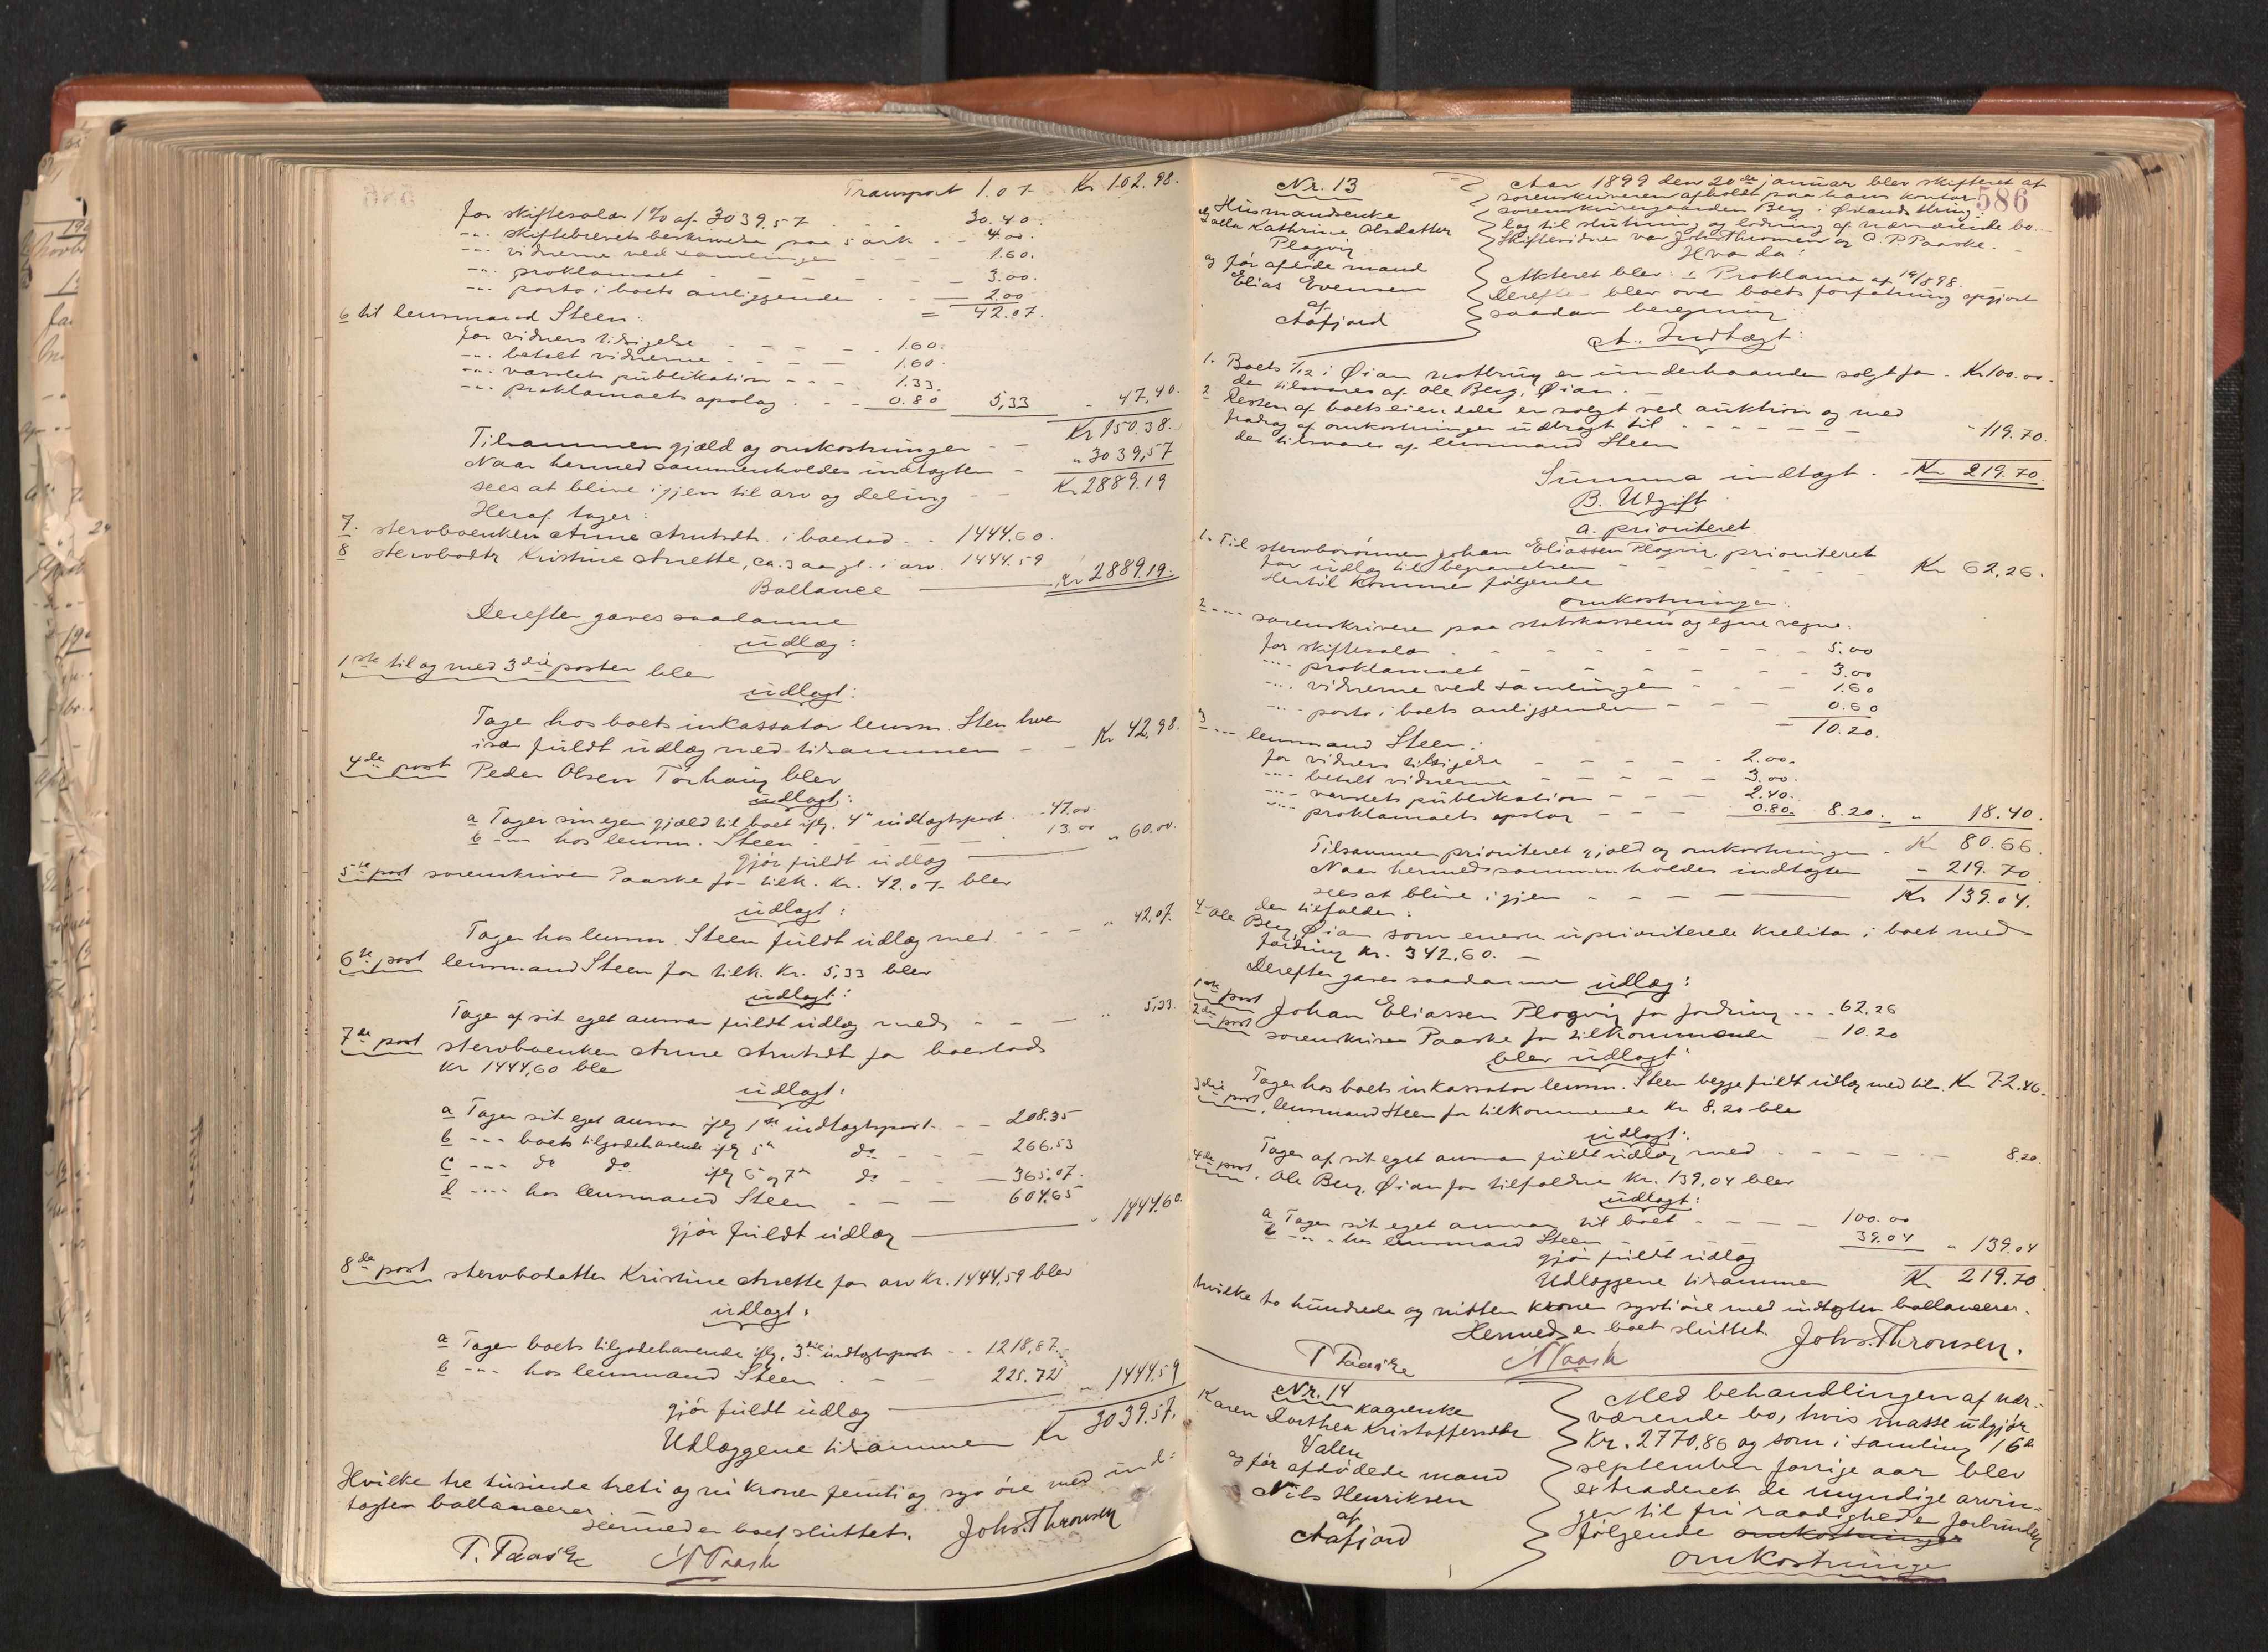 Transport 1.07 Kr 102.98.
for skiftesalær 1% af 3039,57 30.40.
-"- skiftebrevets beskrivelse paa 5 ark 4.00.
-"- vidnerne ved samlingen 1.60.
-"- proklamaet 3.00.
-"- porto i boets anliggender 2.00
= 42.07.
6 til lensmand Steen:
for vidners tilsigelse 1.60.
-"- betalt vidnerne 1.60.
-"- varslets publikation 1.33.
-"- proklamaets opslag 0.80 5,33 - 47,40.
Tilsammen gjæld og omkostninger Kr 150.38.
Naar hermed sammenholdes indtægten " 3039,57
sees at blive igjen til arv og deling Kr 2889.19
Heraf tager:
7. stervboenken Anne Arntsdtr. i boeslod 1444.60
8 stervbodtr Kristine Anette, ca. 3 aar gl. i arv. 1444.59
Ballance Kr 2889.19.
Derefter gaves saadanne
udlæg:
1ste til og med 3die poster blev
udlagt:
Tager hos boets inkassator lensm. Steen hver
især fuldt udlæg med tilsammen Kr 42,98.
4de post Peder Olsen Törhaug blev
udlagt:
a Tager sin egen gjæld til boet iflg. 4de indtægtspost 47.00
b -"- hos lensm. Steen 13.00 " 60.00.
gjör fuldt udlæg
5te post sorenskriver Paaske for tilk. Kr. 42.07 blev
udlagt:
Tager hos lensm. Steen fuldt udlæg med " 42,07.
6te post lensmand Steen for tilk. Kr. 5,33 blev
udlagt:
Tager af sit eget ansvar fuldt udlæg med " 5,33.
7de post stervboenken Anne Arntsdtr for boeslods
Kr 1444,60 blev
udlagt:
a Tager sit eget ansvar iflg 1ste indtægtspost 208.35
b -"- boets tilgodehavende iflg 5te do 266.53
c -"- do do iflg 6 og 7de do 365.07.
d -"- hos lensmand Steen 604.65
gjör fuldt udlæg " 1444.60.
8de post stervbodatter Kristine Anette for arv Kr. 1444,59 blev
udlagt:
a Tager boets tilgodehavende iflg. 3die indtægtspost 1218,87.
b -"- hos lensmand Steen 225.72 " 1444.59
gjör fuldt udlæg
Udlæggene tilsammen Kr 3039.57.
Hvilke tre tusinde treti og ni kroner femti og syv öre med ind-
tægten ballancerer
Hermed er boet sluttet. Johs. Thronsen
T. Paaske N Paaske
586
Nr. 13
Husmandsenke
Kathrine Olsdatter
Plagvig
og för afdöde mand
Elias Evensen
af
Aafjord
Aar 1899 den 20de januar blev skifteret af
sorenskriveren afholdt paa hans kontor
sorenskrivergaarden Berg i Ørlands thing-
lag til slutning og lodning af nærværende bo.
Skiftevidner var Johs Thronsen og O. P. Paaske.
Hvor da:
Akteret blev: 1 Proklama af 19/8 98.
Derefter blev over boets forfatning opgjort
saadan beregning
A. Indtægt:
1. Boets 1/12 i Øian notbrug er underhaanden solgt for Kr 100.00.
der tilsvares af Ole Berg, Øian.
2 Resten af boets eiendele er solgt ved auktion og med
fradrag af omkostninger udbragt til - 119.70.
der tilsvares af lensmand Steen
Summa indtægt Kr 219.70.
B. Udgift
a. prioriteret
1. Til stervbosönnen Johan Eliassen Plagvig, prioriteret
for udlæg til begravelsen Kr 62,26.
Hertil kommer fölgende
omkostninger:
2 -"- sorenskriveren paa statskassens og egne vegne:
for skiftesalær 5.00
-"- proklamaet 3.00
-"- vidnerne ved samlingen 1.60
-"- porto i boets anliggender 0.60
- 10.20.
3 -"- lensmand Steen:
for vidners tilsigelse 2.00.
-"- betalt vidnerne 3.00.
-"- varslets publikation 2.40.
-"- proklamaets opslag 0.80. 8.20. " 18.40.
Tilsammen prioriteret gjæld og omkostninger Kr 80.66.
Naar hermed sammenholdes indtægten - 219.70.
sees at blive igjen Kr 139.04.
der tilfalder:
4 Ole Berg, Øian som eneste uprioriterede kreditor i boet med
fordring Kr. 342,60.
Derefter gaves saadanne udlæg:
1ste post Johan Eliassen Plagvig for fordring 62.26
2den post sorenskriver Paaske for tilkommende 10.20
blev udlagt
Tager hos boets inkassator lensm. Steen begge fuldt udlæg med tils. Kr 72.46.
3die post, lensmand Steen for tilkommende Kr 8.20 blev
udlagt:
Tager af sit eget ansvar fuldt udlæg med 8.20.
4de post, Ole Berg, Øian for tilfaldne Kr. 139,04 blev
udlagt:
a Tager sit eget ansvar til boet 100.00
b -"- hos lensmand Steen 39.04 " 139.04
gjör fuldt udlæg
Udlæggene tilsammen Kr 219.70
hvilke to hundrede og nitten kroner syvti öre med indtægten ballancerer.
Hermed er boet sluttet. Johs. Thronsen.
T Paaske N Paaske
Nr. 14
kaarenke
Karen Dorthea Kristoffersdtr
Valen
og för afdödede mand
Nils Henriksen
af
Aafjord
Med behandlingen af nær-
værende bo, hvis masse udgjör
Kr. 2770,86 og som i samling 16de
september forrige aar blev
extraderet de myndige arvin-
ger til fri raadighed forbundet
fölgende omkostninger
omkostninger